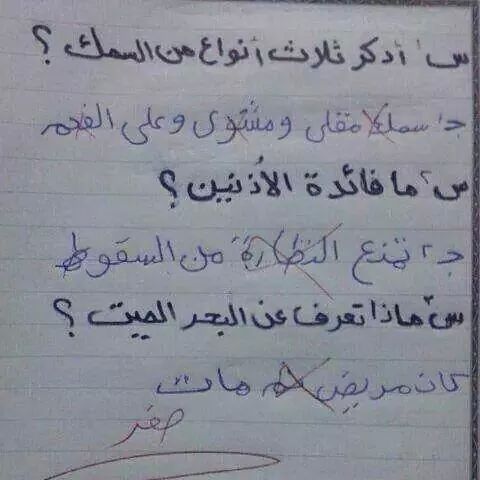 س١ أذكر ثلاث أنواع من السمك ؟
ج١ سمك مقلي ومشوي وعلى الفحم
س٢ ما فائدة الأذنين ؟
ج٢ تمنع النظارة من السقوط
س٣ ماذا تعرف عن البحر الميت ؟
كان مريض ثم مات
صفر